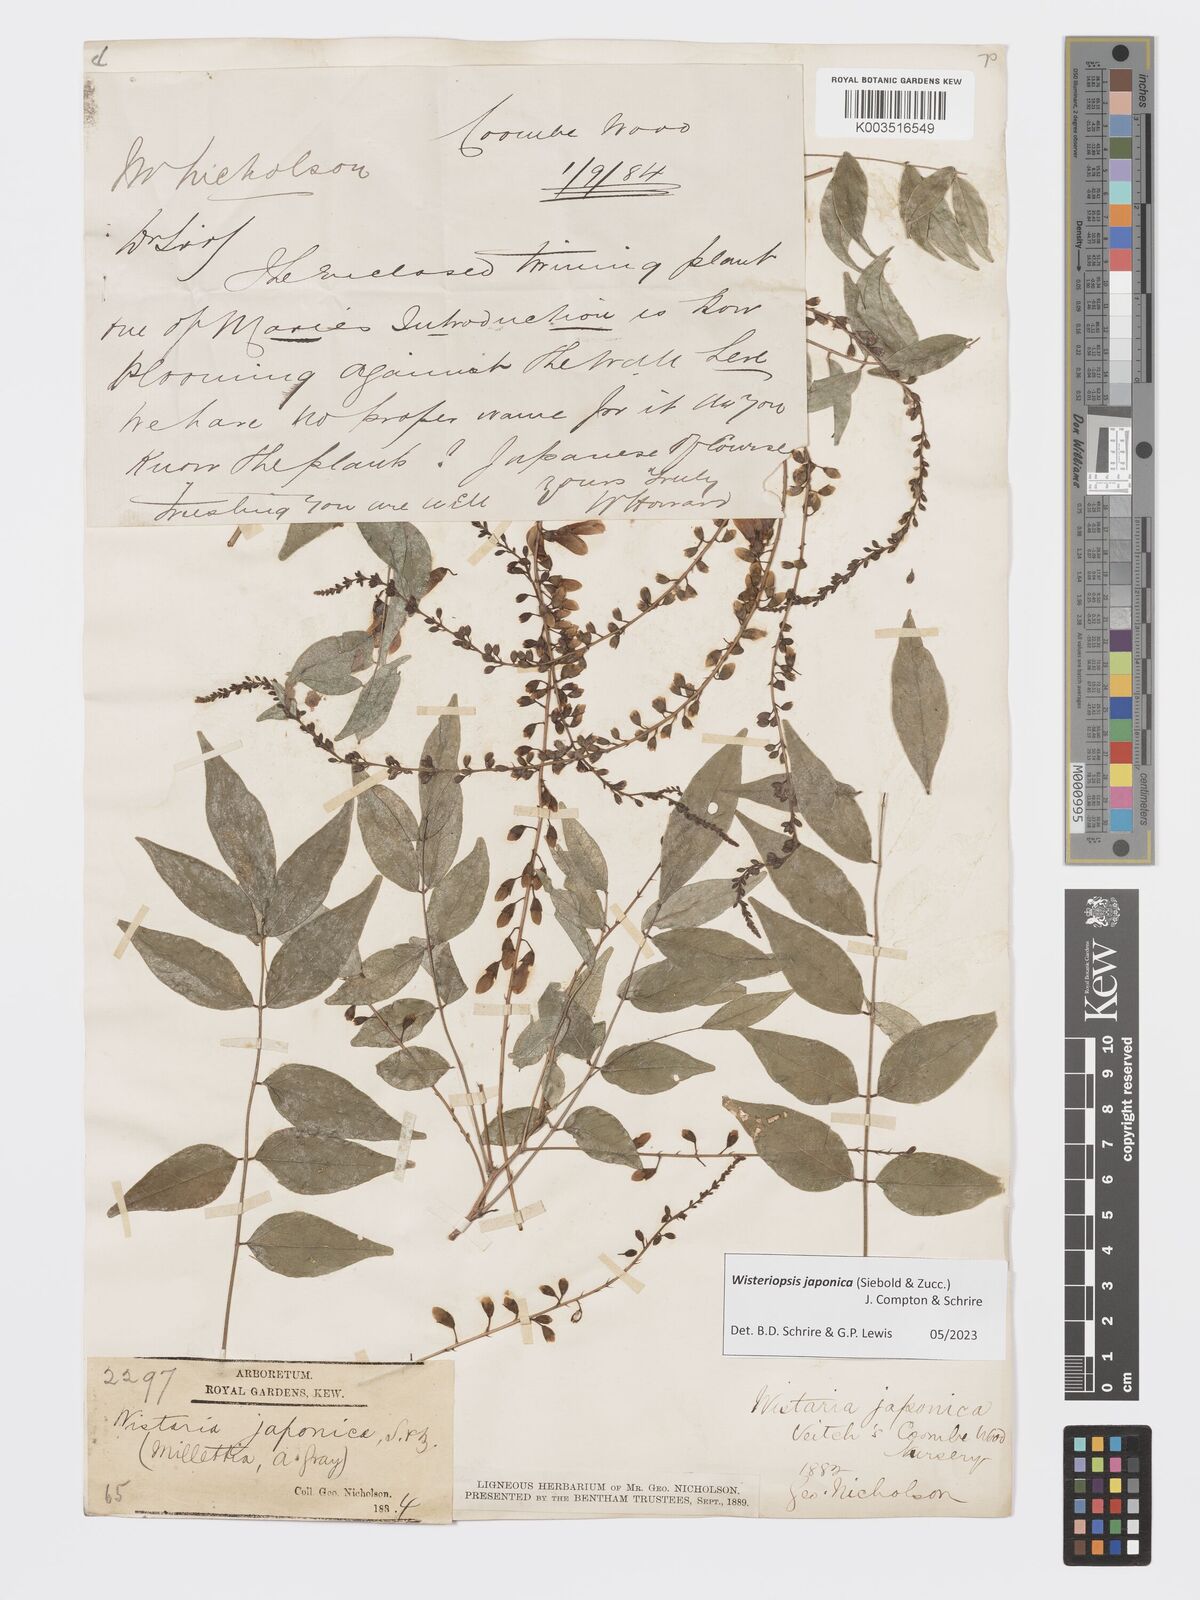 ROYAL BOTANIC GARDENS KEW
K003516549
Coombe Wood
Mr Nicholson
1/9/84
Dr Sir
The Enclosed twining plant
one of Maries Introduction is now
blooming against the Wall here
We have no proper name for it do you
Know the plant? Japanese of Course
Trusting you are well yours Truly
W Howard
Wisteriopsis japonica (Siebold & Zucc.)
J. Compton & Schrire
Det. B.D. Schrire & G.P. Lewis 05/2023
2297
ARBORETUM.
ROYAL GARDENS, KEW.
Wistaria japonica, S. & Z.
(Millettia, A. Gray)
65
Coll. Geo. Nicholson.
1884
LIGNEOUS HERBARIUM OF MR. GEO. NICHOLSON.
PRESENTED BY THE BENTHAM TRUSTEES, SEPT., 1889.
Wistaria japonica
Veitch's Coombe Wood
Nursery
1882
Geo. Nicholson
inches
centimetres
Don Williams
M000995
Royal Botanic Gardens
Kew
0 1 2 3 4 5 6 7 8 9 10
cm
copyright reserved